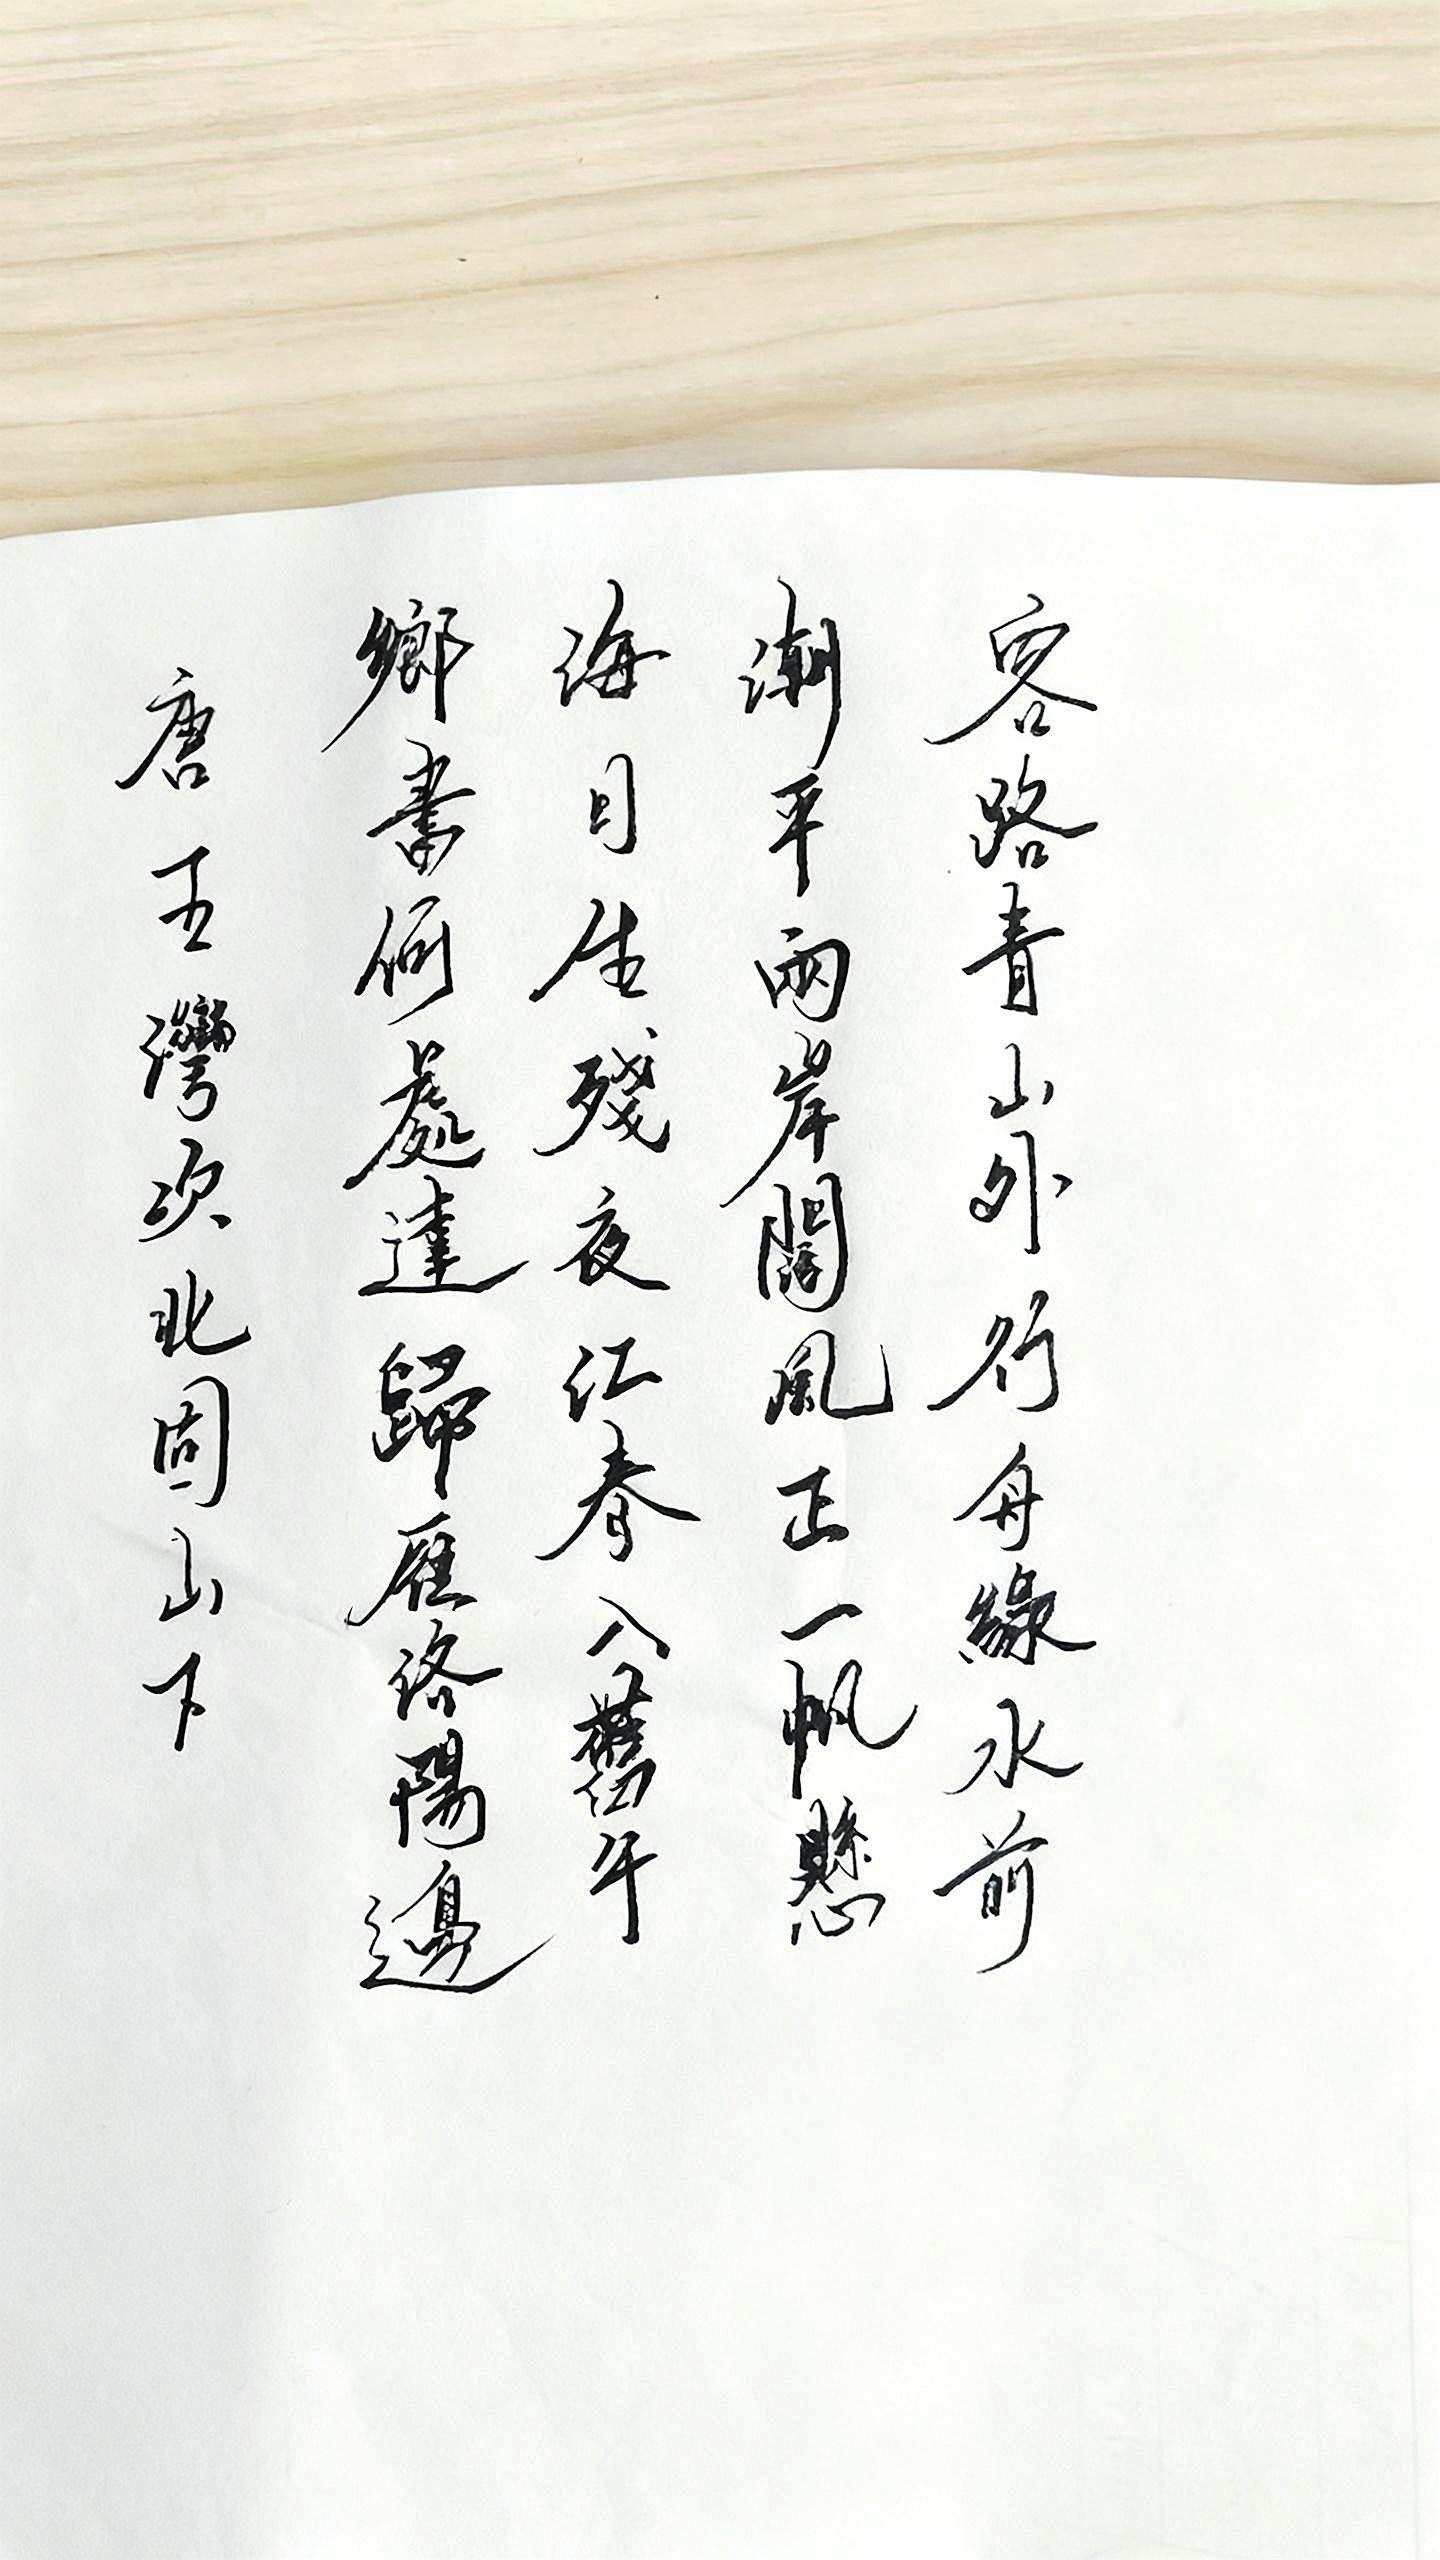 客路青山外行舟綠水前
潮平兩岸闊風正一帆懸
海日生殘夜江春入舊年
鄉書何處達歸雁洛陽邊
唐王灣次北固山下